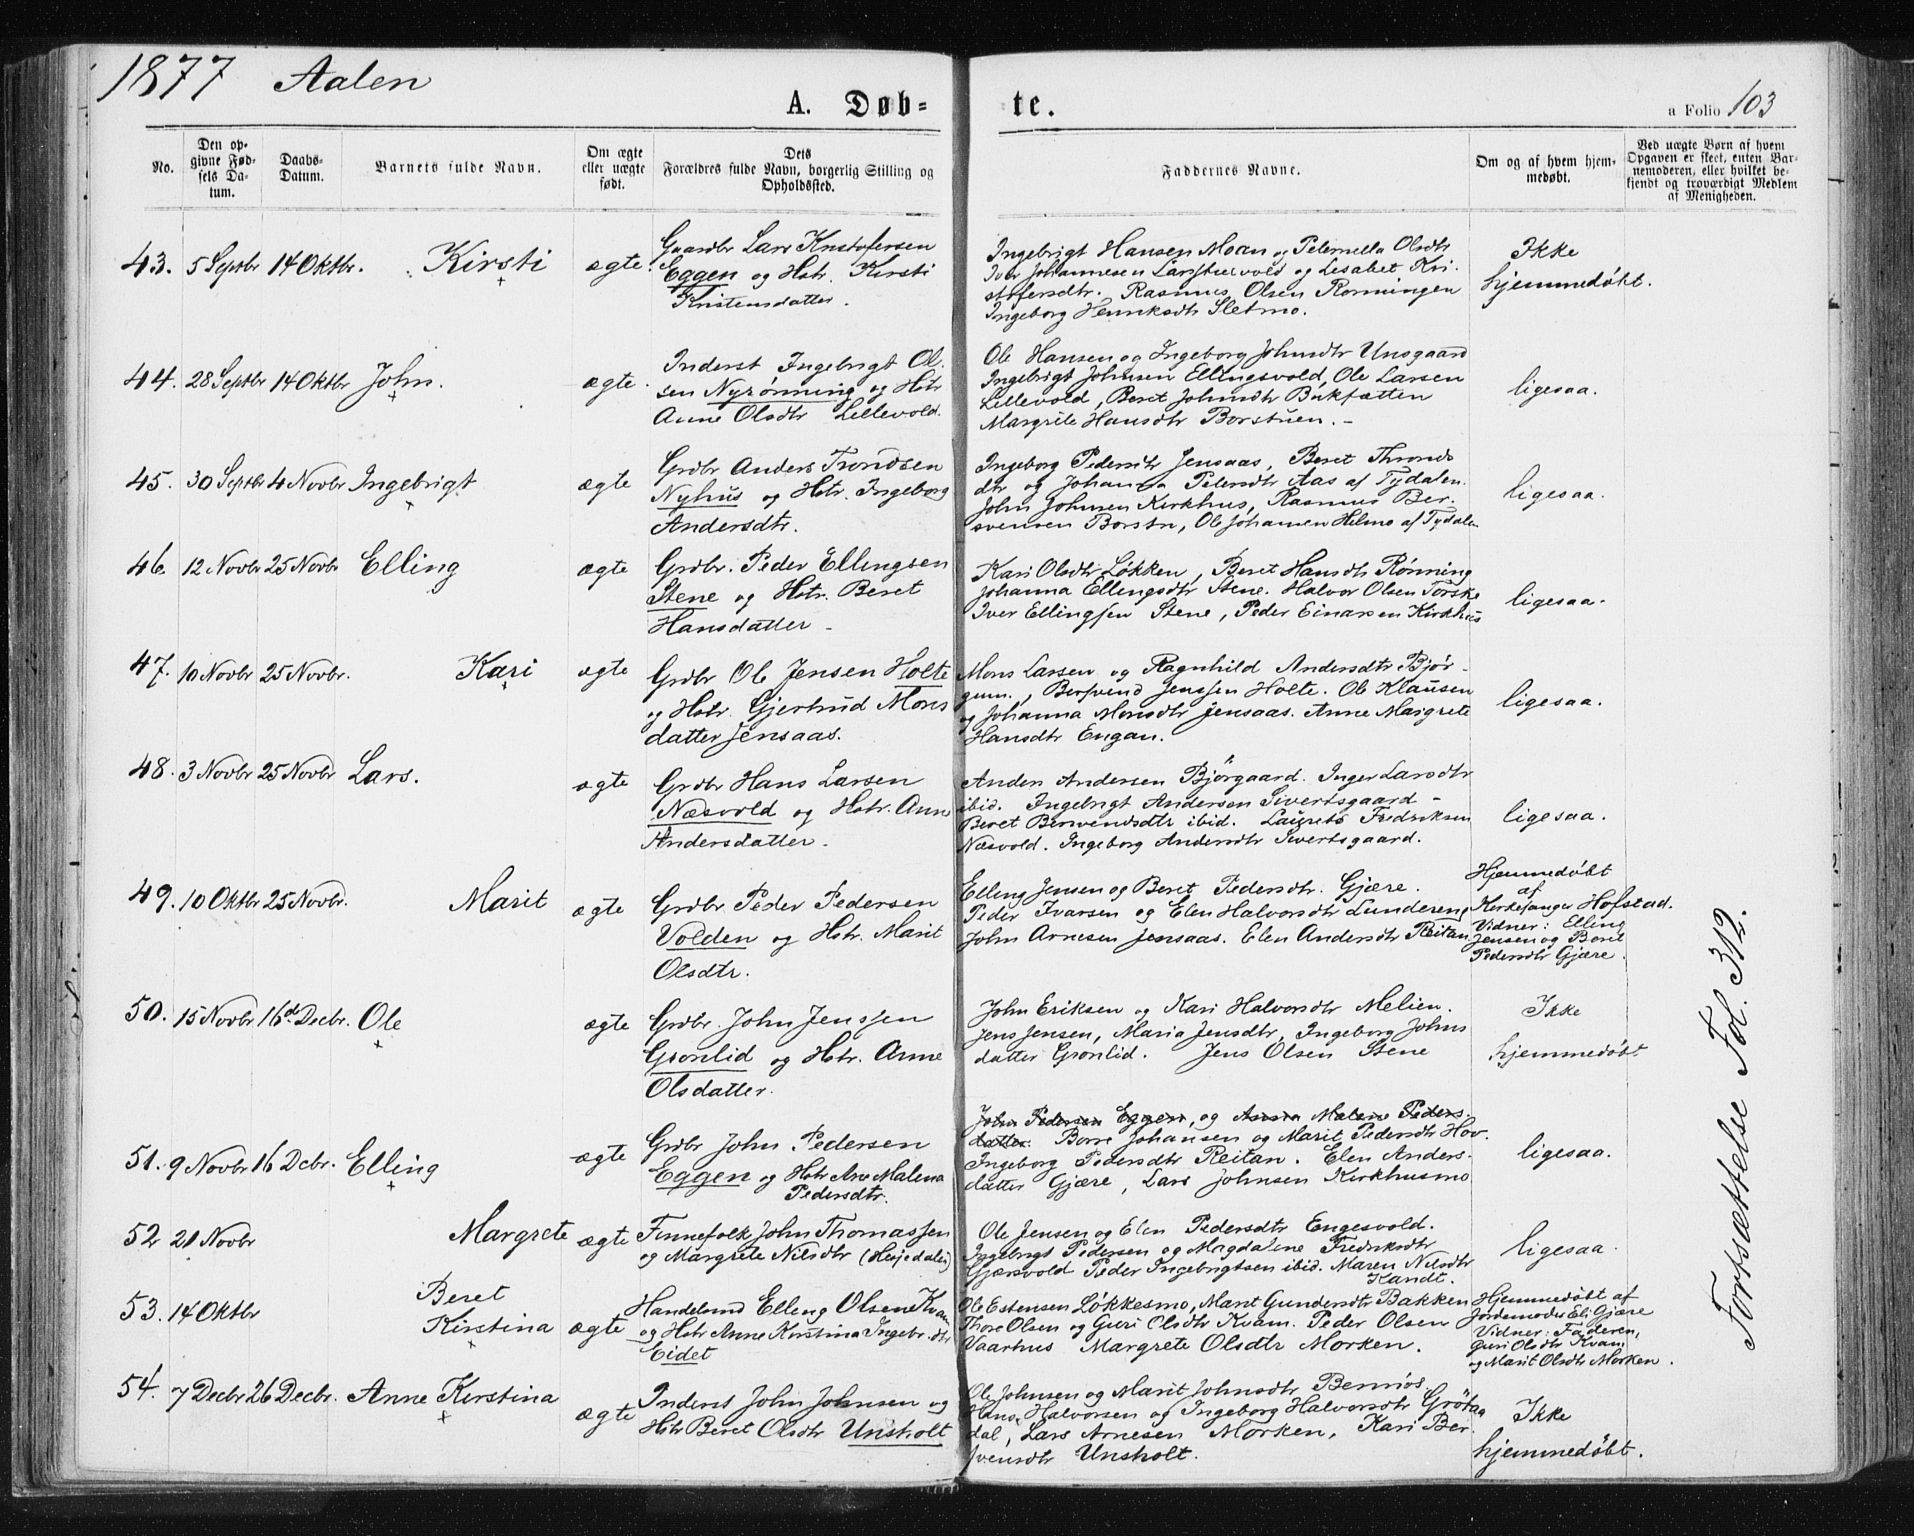 1877 Aalen
A. Døb-
te.
a Folio 103
No.
Den op-
givne Fød-
sels Da-
tum.
Daabs-
Datum.
Barnets fulde Navn.
Om ægte
eller uægte
født.
Dets
Forældres fulde Navn, borgerlig Stilling og
Opholdssted.
Faddernes Navne.
Om og af hvem hjem-
medøbt.
Ved uægte Børn af hvem
Opgaven er skeet, enten Bar-
nemoderen, eller hvilket be-
kjendt og troværdigt Medlem
af Menigheden.
43. 5 Septbr 14 Oktbr. Kirsti ægte.
Gaardbr Lars Kristofersen
Eggen og Hstr. Kirsti
Kristensdatter.
Ingebrigt Hansen Moan og Peternella Olsdtr
Iver Johannesen Langtuevold og Lisabet Kri-
stofersdtr. Rasmus Olsen Ronningen
Ingeborg Henriksdtr Sletmo.
Ikke
hjemmedøbt.
44. 28 Septbr 14 Oktbr John. ægte.
Inderst Ingebrigt Ol-
sen Nyrønning og Hstr
Anne Olsdtr Lillevold.
Ole Hansen og Ingeborg Johnsdtr Unsgaard
Ingebrigt Johnsen Ellingsvold, Ole Larsen
Lillevold, Beret Johnsdtr Bukfætten
Margrete Hansdtr Borstuen. -
ligesaa.
45. 30 Septbr 4 Novbr Ingebrigt ægte
Grdbr Anders Trondsen
Nyhus og Hstr. Ingeborg
Andersdtr.
Ingeborg Pedersdtr Jensaas, Beret Thronds
dtr og Johanna Petersdtr Aas af Tydalen.
John Johnsen Kirkhus, Rasmus Ber-
svensen Borstn, Ole Johansen Hilmo af Tydalen
ligesaa.
46. 12 Novbr 25 Novbr Elling ægte
Grdbr. Peder Ellingsen
Stene og Hstr. Beret
Hansdatter -
Kari Olsdtr Løkken, Beret Hansdtr Rønning
Johanna Ellingsdtr Stene. Halvor Olsen Torske
Iver Ellingsen Stene, Peder Einarsen Kirkhus
ligesaa.
47. 10 Novbr 25 Novbr. Kari ægte
Grdbr Ole Jensen Holte
og Hstr. Gjertrud Mons
datter Jensaas.
Mons Larsen og Ragnhild Andersdtr Bjør-
gum., Bersvend Jenssen Holte. Ole Klausen
og Johanna Monsdtr Jensaas. Anne Margrete
Hansdtr Engan.
ligesaa.
48. 3 Novbr 25 Novbr Lars. ægte
Grdbr Hans Larsen
Næsvold og Hstr. Anne
Andersdatter.
Anders Andersen Bjørgaard. Inger Larsdtr
ibid. Ingebrigt Andersen Sivertsgaard -
Beret Bersvendsdtr ibid. Fredriksen
Næsvold. Ingeborg Andersdtr Sivertsgaard.
ligesaa.
49. 10 Oktbr 25 Novbr. Marit ægte
Grdbr Peder Pedersen
Volden og Hstr. Marit
Olsdtr.
Elling Jensen og Beret Pedersdtr. Gjære.
Peder Ivarsen og Elen Halvorsdtr Lundereng
John Arnesen Jensaas. Elen Andersdtr Reitan
Hjemmedøbt
af
Kirkesanger Hofstad.
Vidner: Elling
Jensen og Beret
Pedersdtr Gjære.
50. 15 Novbr 16de Decbr. Ole ægte
Grdbr. John Jenssen
Gronlid og Hstr. Anne
Olsdatter.
John Eriksen og Kari Halvorsdtr Melien.
Jens Jensen, Maria Jensdtr, Ingeborg Johns
datter Gronlid. Jens Olsen Stene
Ikke
hjemmedøbt
51. 9 Novbr 16 Dcbr. Elling ægte
Grdbr John Pedersen
Eggen og Hstr Ane Malena
Pedersdtr.
John Pedersen Eggen, og Anna Malene Peders-
datter. Borre Johansen og Marit Pedersdtr Hov.
Ingeborg Pedersdtr Reitan. Elen Anders-
datter Gjære, Lars Johnsen Kirkhusmo
ligesaa.
52 21 Novbr Margrete ægte
Finnefolk John Thomassen
og Margrete Nilsdtr (Herjedalen)
Ole Jensen og Elen Pedersdtr Engesvold.
Ingebrigt Pedersen og Magdalene Fredriksdtr
Gjærsvold Peder Ingebrigtsen ibid. Maren Nilsdtr
Kandt.
ligesaa.
53. 14 Oktbr Beret
Kirstina ægte
Handelsmd Elling Olsen Kvam
og Hstr Anne Kirstina Ingebr.dtr
Eidet
Ole Estensen Løkkesmo, Marit Gundersdtr Bakken
Thore Olsen og Guri Olsdtr Kvam. Peder Olsen
Vaarhus Margrete Olsdtr Morken.
Hjemmedøbt af
Jordemoder Eli Gjære
Vidner: Faderen,
Guri Olsdtr Kvam
og Marit Olsdtr Morken.
54. 7 Decbr 26 Decbr. Anne Kirstina ægte
Inderst John Johnsen og
Hstr Beret Olsdtr Unsholt
Ole Johnsen og Marit Johnsdtr Bennøs.
Hans Halvorsen og Ingeborg Halvorsdtr Grøtaa
dal, Lars Arnesen Morken, Kari Ber-
svensdtr Unsholt.
Ikke
hjemmedøbt.
Fortsættelse Fol. 312.